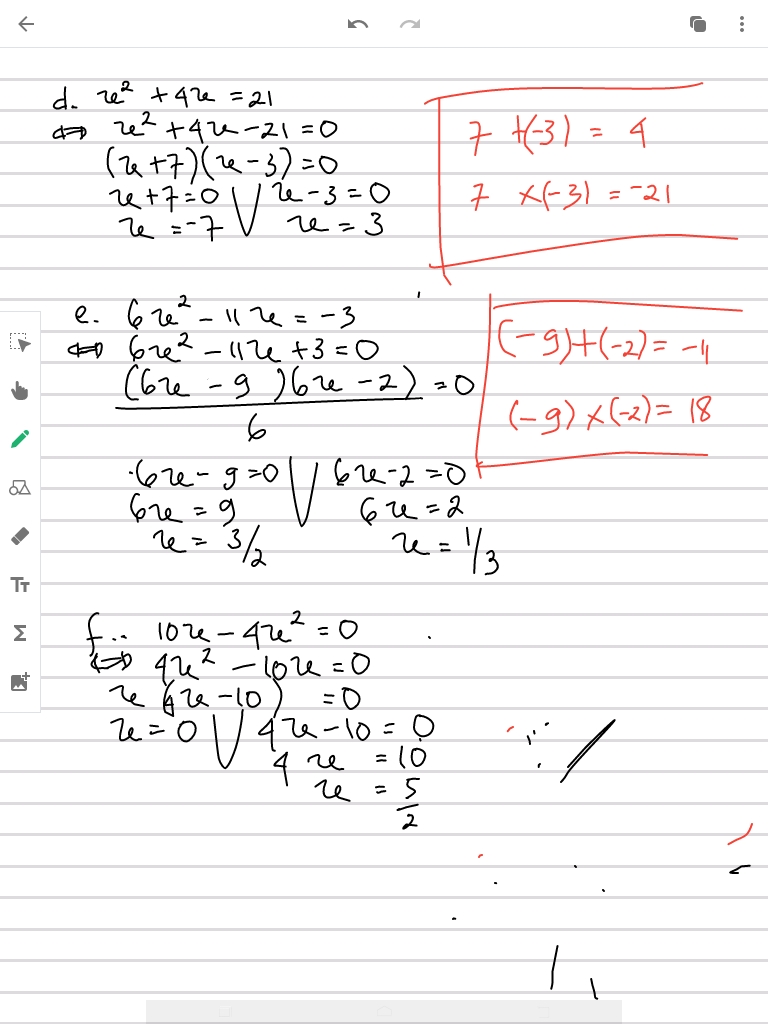 d. x² + 4x = 21
⇔ x² + 4x - 21 = 0
(x + 7)(x - 3) = 0
x + 7 = 0 ∨ x - 3 = 0
x = -7 x = 3
7 + (-3) = 4
7 × (-3) = -21
e. 6x² - 11x = -3
⇔ 6x² - 11x + 3 = 0
(6x - 9)(6x - 2) = 0
6
6x - 9 = 0 ∨ 6x - 2 = 0
6x = 9 6x = 2
x = 3/2 x = 1/3
(-9) + (-2) = -11
(-9) × (-2) = 18
f.. 10x - 4x² = 0
⇔ 4x² - 10x = 0
x (4x - 10) = 0
x = 0 ∨ 4x - 10 = 0
4x = 10
x = 5
2
Tт
Σ